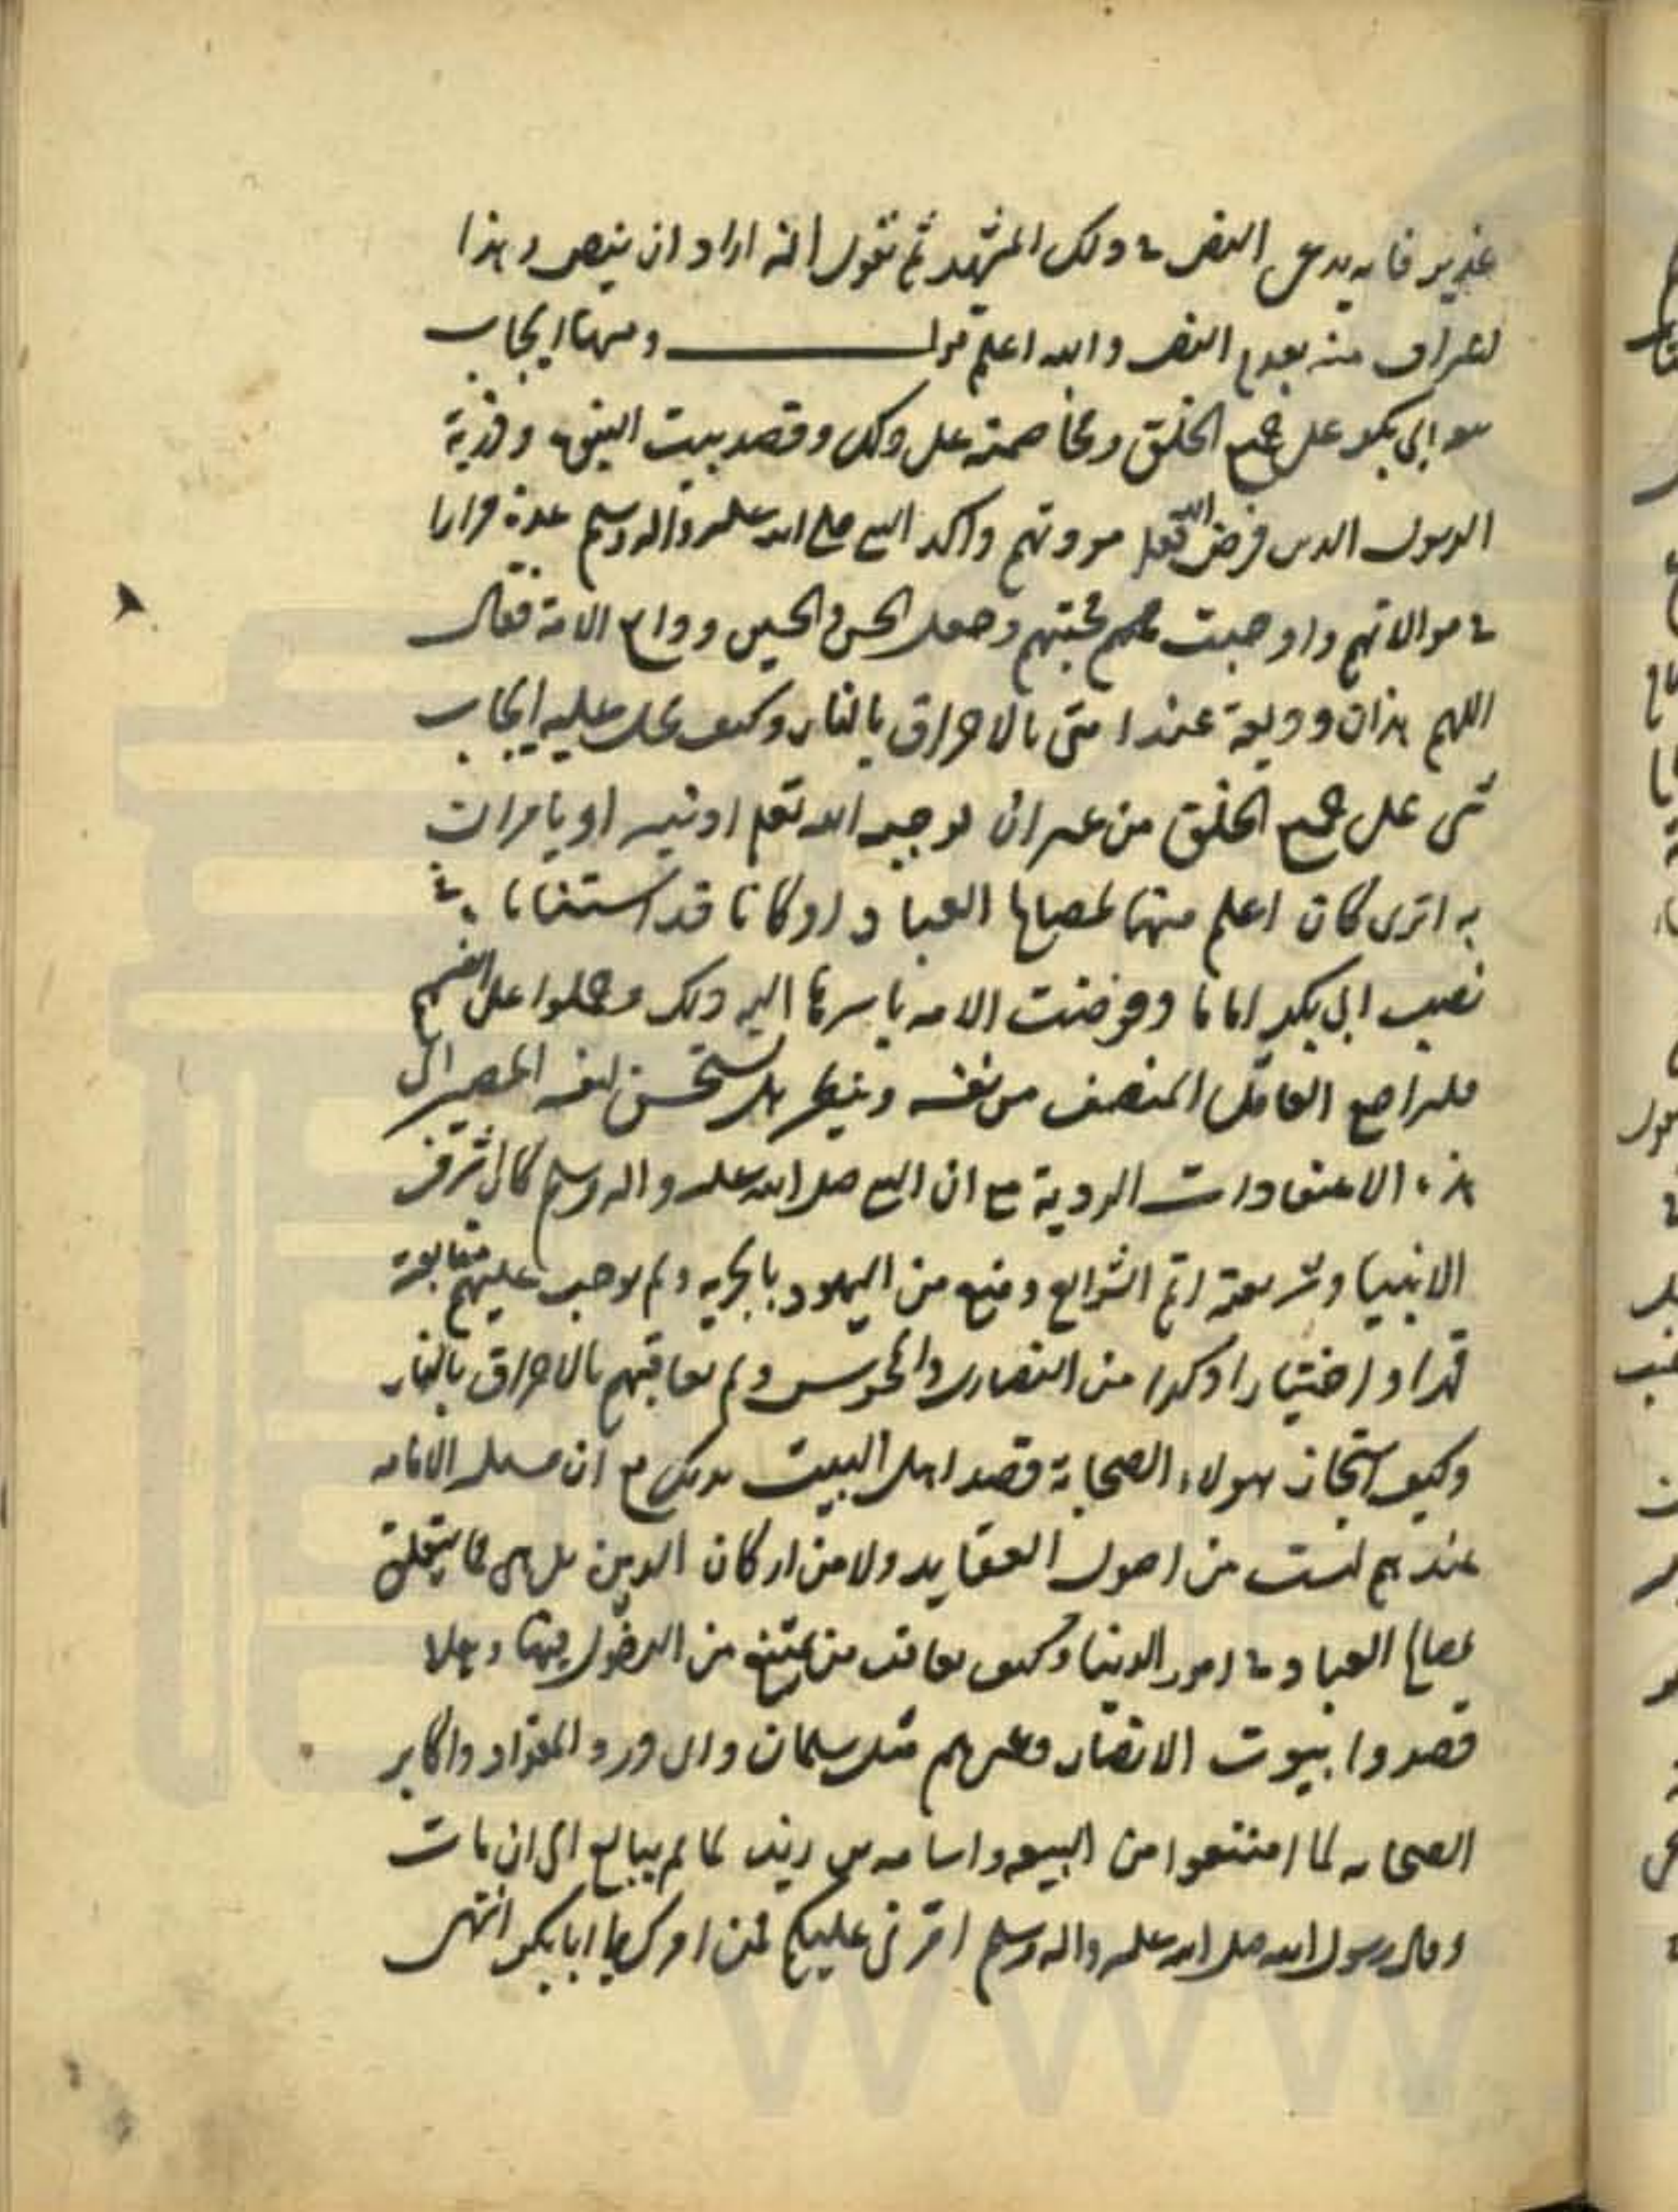 غدير فانه يدعى النص في ذلك المشهد ثم تقول انه اراد ان ينص و هذا
اعتراف منه بعدم النص و الله اعلم قوله ومنها ايجاب
بيعة ابي بكر على جميع الخلق ومخاصمته على ذلك وقصد بيت النبوة وذرية
الرسول الذين فرض الله تعالى مودتهم واكد النبي صلى الله عليه واله وسلم عدة مرارا
في موالاتهم واوجبت محبتهم وجعل الحسن والحسين ودايع الامة فقال
اللهم هذان وديعة عند امتى بالاحراق بالنار وكيف يحل عليه ايجاب
شى على جميع الخلق من غير ان يوجبه الله تعلى او نبيه او يامران
به اترى كان اعلم منهما بمصالح العباد او كانا قد استنابا به في
نصب ابي بكر اماما وفوضت الامه باسرها اليه ذلك وحكموا على انفسهم
فليراجع العاقل المنصف من نفسه وينظر هل يستحسن لنفسه المصير الى
هذه الاعتقادات الردية مع ان النبي صلى الله عليه واله وسلم كان اشرف
الانبيا وشريعته اتم الشرايع وقنع من اليهود بالجزيه ولم يوجب عليهم متابعته
قهرا و اختيارا وكذا من النصارى والمجوس ولم يعاقبهم بالاحراق بالنار
وكيف استجاز هولاء الصحابة قصد اهل البيت بذلك مع ان مسله الامامه
عندهم ليست من اصول العقايد ولا من اركان الدين بل هى مما يتعلق
بمصالح العباد في امور الدنيا وكيف يعاقب من يمتنع من الدخول فيها وهلا
قصدوا بيوت الانصار وغيرهم مثل سلمان وابى ذر و المقداد واكابر
الصحابه لما امتنعوا من البيعه واسامه بن زيد لما لم يبايع الى ان مات
وقال رسول الله صلى الله عليه واله وسلم امرنى عليكم فمن امرك يا ابا بكر انتهى